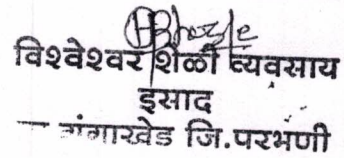 विश्वेश्वर शेळी व्यवसाय
इसाद
गंगाखेड जि.परभणी